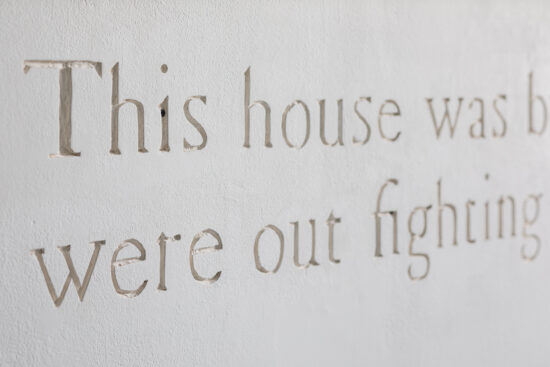 This house was b
were out fighting